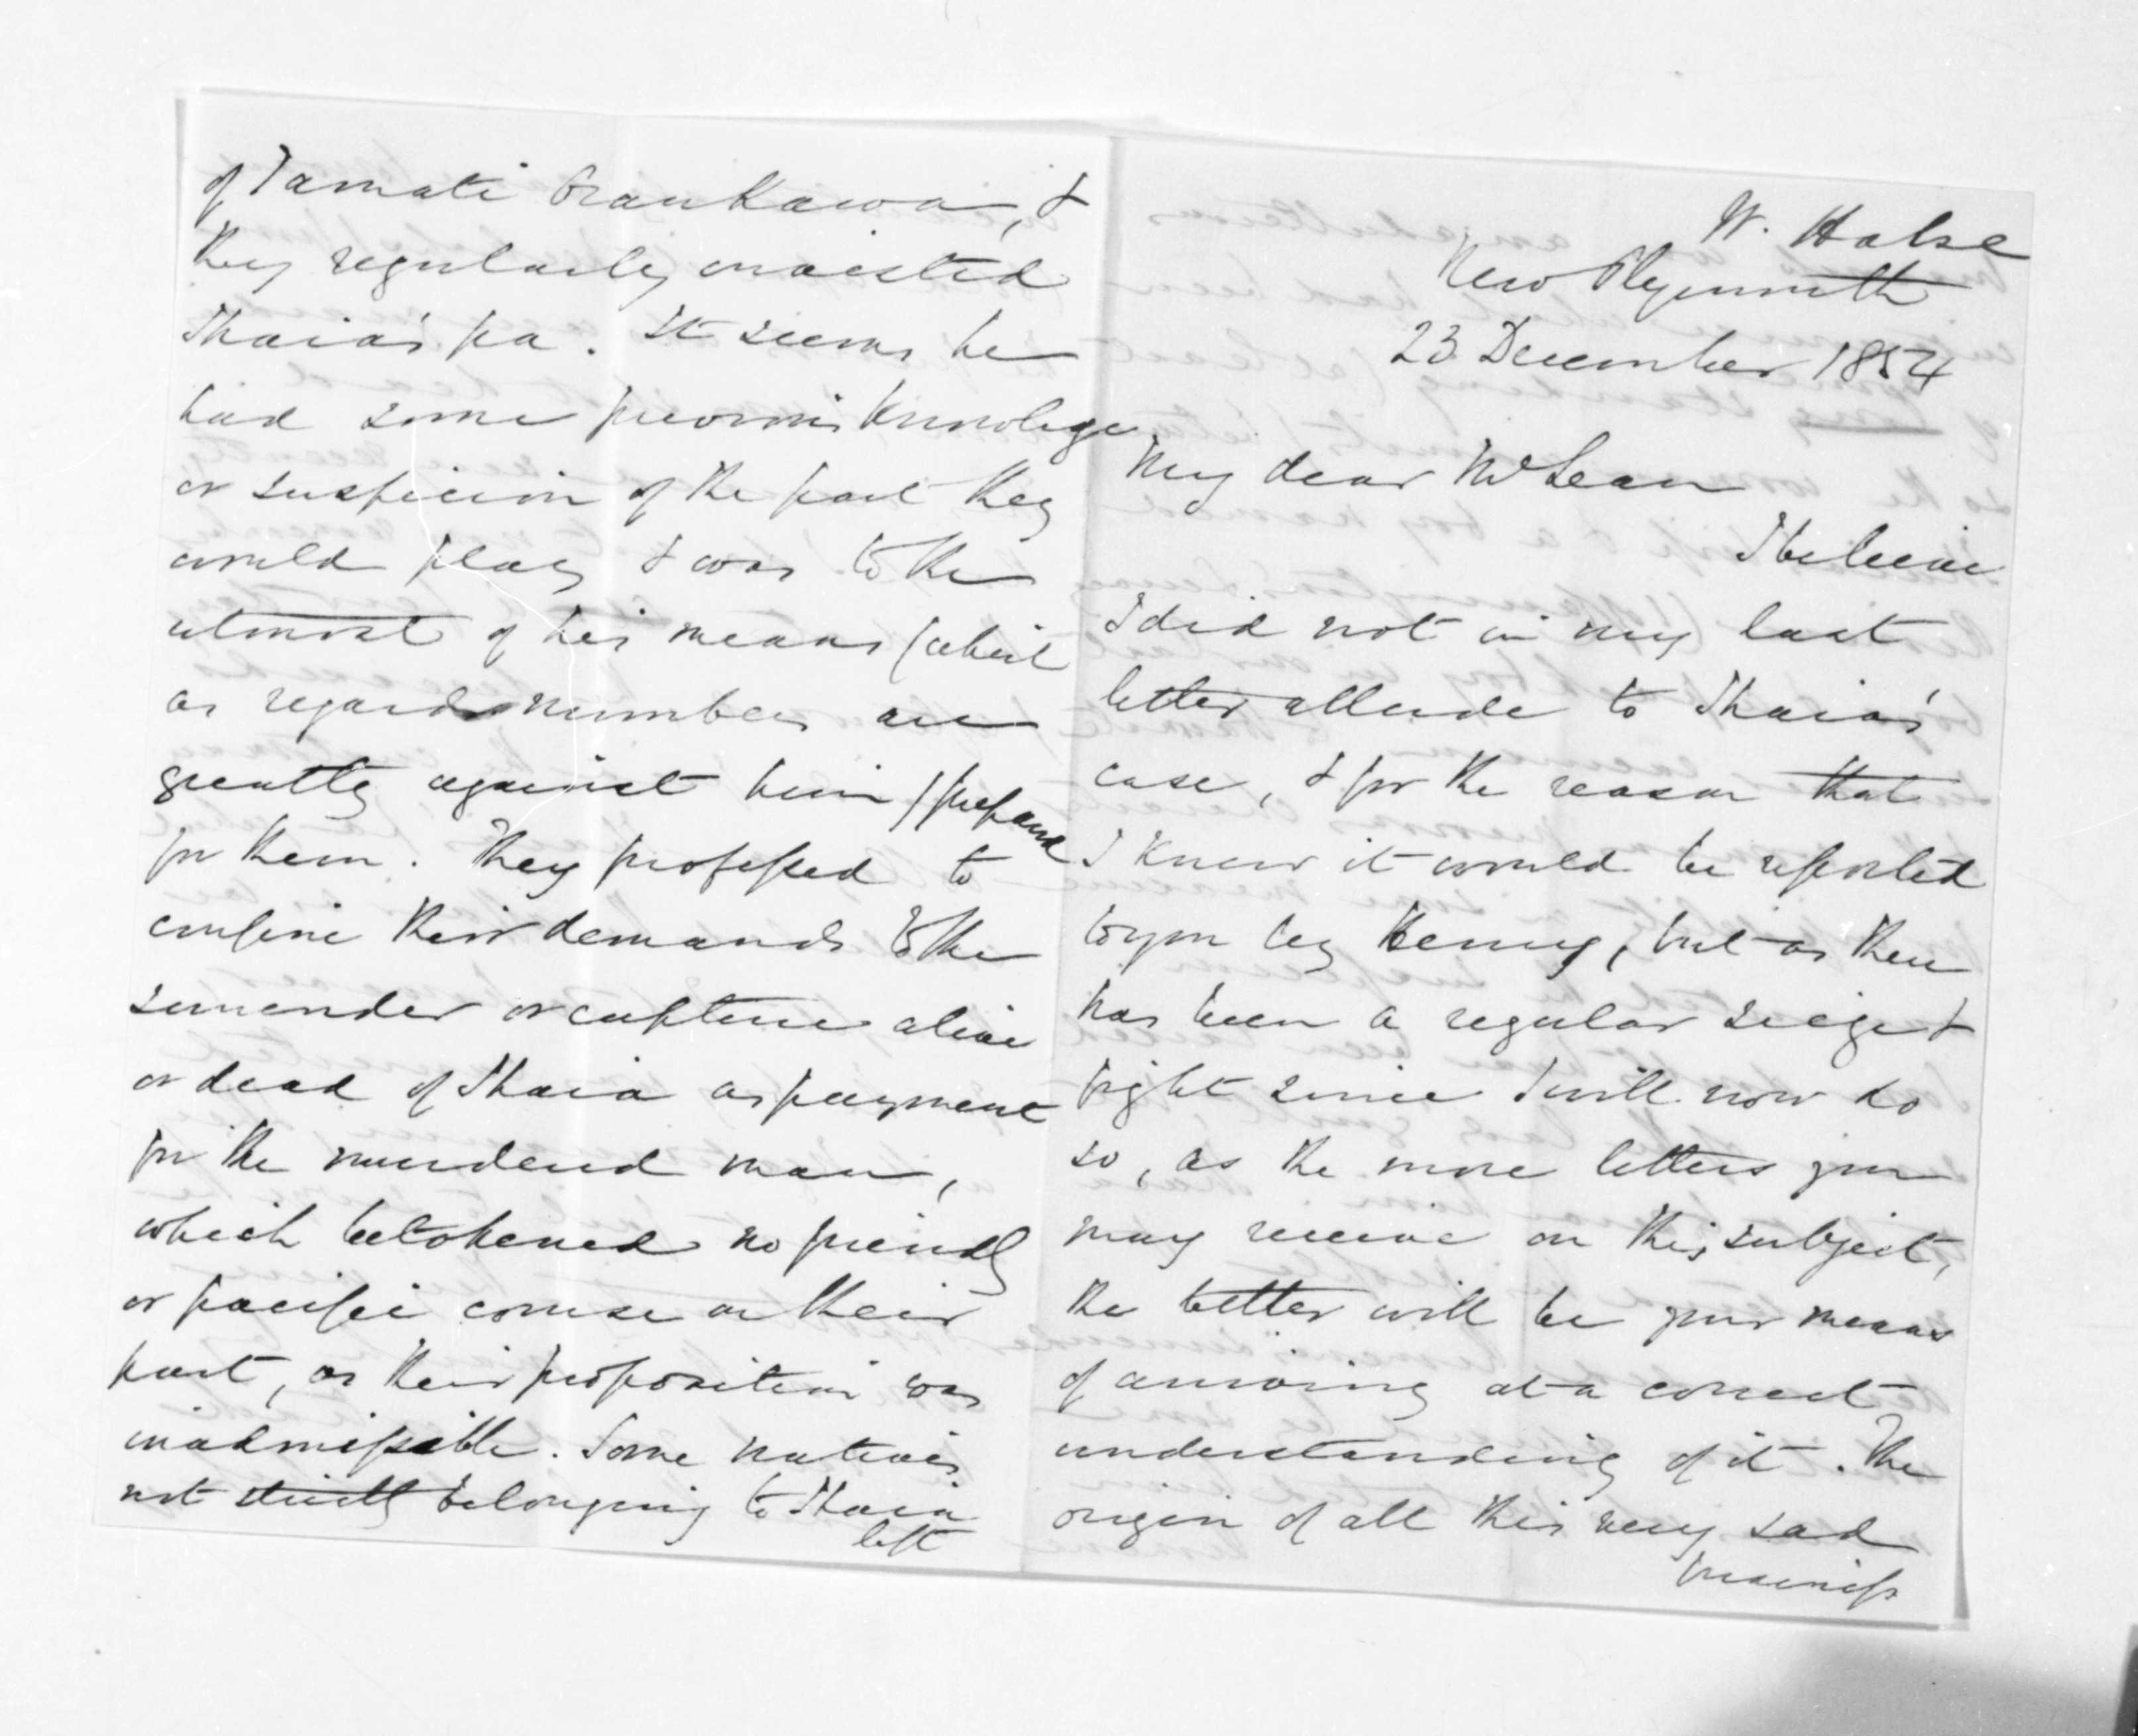 W. Halse
New Plymouth
23 December 1854
My dear McLean
I believe
I did not in my last
letter allude to Ihaia's
case, & for the reason that
I knew it would be reported
to you by Henry, but as there
has been a regular seige &
fight since I will now do
so, as the more letters you
may receive on this subject,
the better will be your means
of arriving at a correct
understanding of it. The
origin of all this very sad
of Tamati Oraukawa, &
they regularly invested
Ihaia's pa. It seems he
had some previous knowlege
or suspicion of the part they
would play & was to the
utmost of his means (which
as regards numbers are
greatly against him) prepared
for them. They professed to
confine their demands to the
surrender or capture alive
or dead of Ihaia as payment
for the murdered man,
which betokened no friendly
or pacific course on their
part, as their proposition was
inadmissible. Some natives
not strictly belonging to Ihaia
left